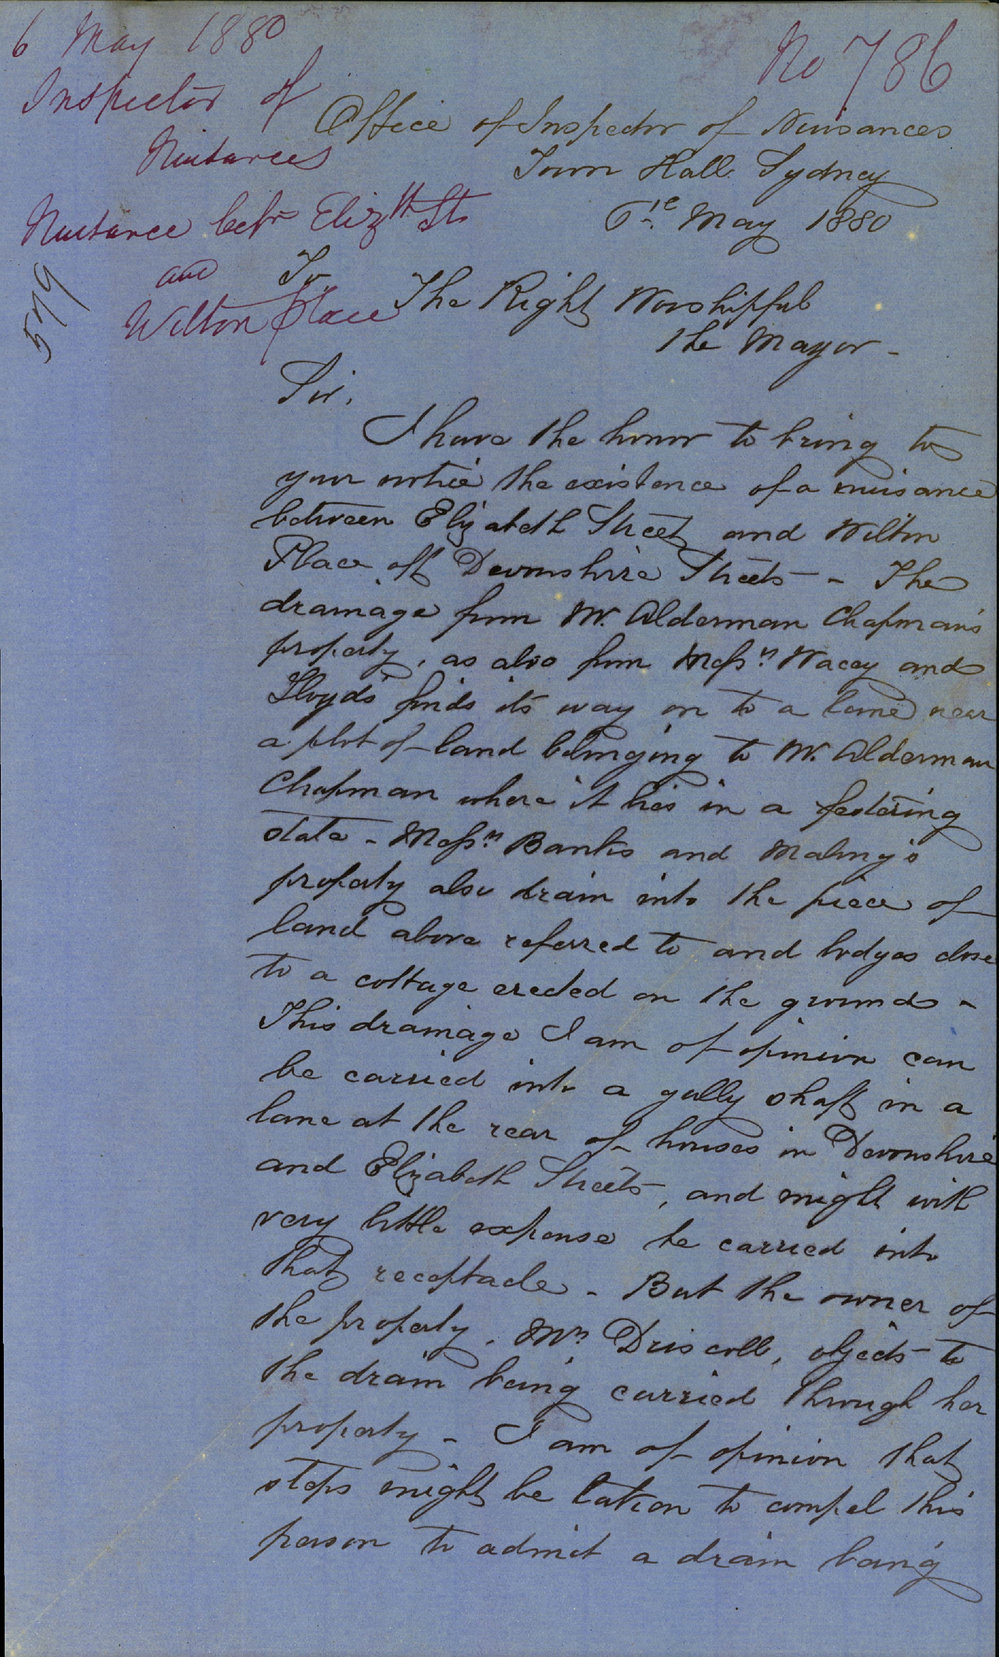 6 May 1880
No 786
Inspector of
Nuisances
Nuisance betn Elizth St
and
Wilton Place
Office of Inspector of Nuisances
Town Hall Sydney
6th May 1880
To
The Right Worshipful
the Mayor -
Sir,
I have the honor to bring to
your notice the existence of a nuisance
between Elizabeth Street and Wilton
Place off Devonshire Streets - The
drainage from Mr. Alderman Chapman's
property, as also from Messrs Wacey and
Lloyds' finds its way on to a lane near
a plot of land belonging to Mr. Alderman
Chapman where it lies in a festering
state - Messrs Banks and Malny's
property also drain into the piece of
land above referred to and lodges close
to a cottage erected on the grounds -
This drainage I am of opinion can
be carried into a gully shaft in a
lane at the rear of houses in Devonshire
and Elizabeth Streets, and might with
very little expense be carried into
that receptacle - But the owner of
the property, Mrs Driscoll, objects to
the drain being carried through her
property - I am of opinion that
steps might be taken to compel this
person to admit a drain being